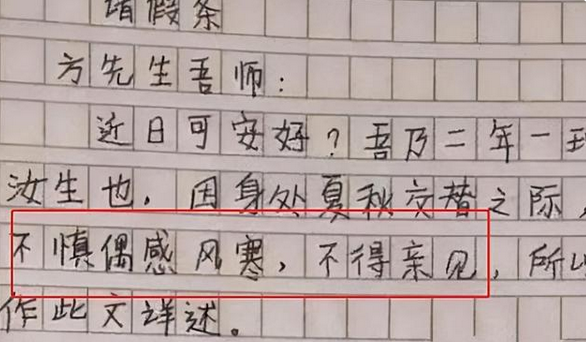 请假条
方先生吾师：
近日可安好？吾乃二年一班
汝生也，因身处夏秋交替之际，
不慎偶感风寒，不得亲见，所以
作此文详述。